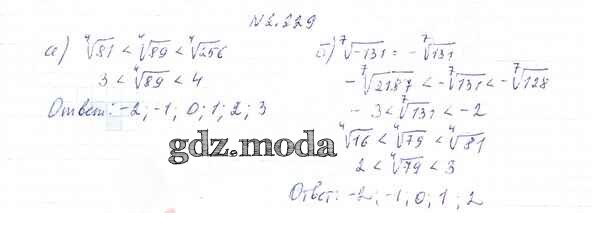 N 2.229
а) ⁴√81 < ⁴√89 < ⁴√256
3 < ⁴√89 < 4
Ответ: -2; -1; 0; 1; 2; 3
б) ⁷√-131 = - ⁷√131
- ⁷√2187 < - ⁷√131 < - ⁷√128
- 3 < ⁷√131 < -2
⁴√16 < ⁴√79 < ⁴√81
2 < ⁴√79 < 3
Ответ: -2; -1; 0; 1; 2
gdz.moda